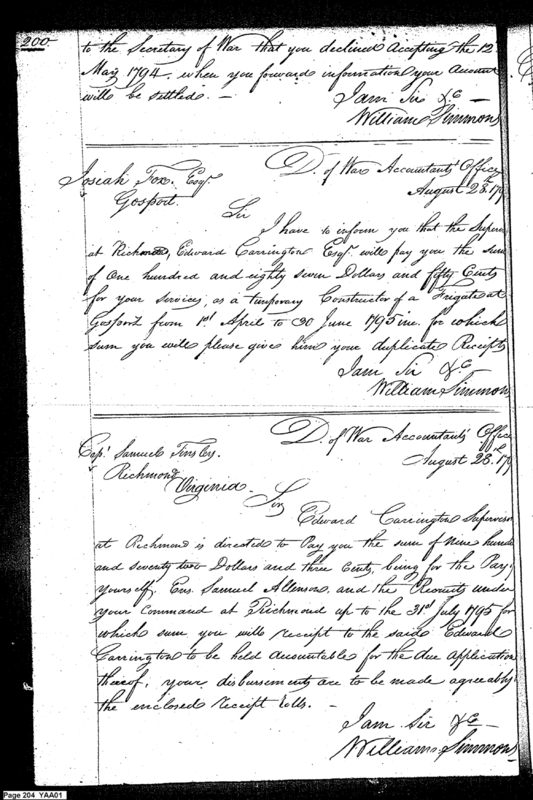 200
to the Secretary of War that you declined accepting the 12
May 1794 - when you forward information your Account
will be settled. -
I am Sir &c -
William Simmons
D. of War Accountants Office
August 28th 179
Josiah Fox Esqr
Gosport
Sir
I have to inform you that the Superv
at Richmond, Edward Carrington Esqr. will pay you the sum
of One hundred and eighty seven Dollars and fifty Cents
for your services, as a temporary Constructor of a Frigate at
Gosport from 1st April to 30 June 1795 inc. for which
sum you will please give him your duplicate Receipts
I am Sir &c
William Simmons
D. of War Accountants Office
August 28th 179
Capt Samuel Tinsley
Richmond
Virginia
Sir
Edward Carrington Supervisor
at Richmond is directed to Pay you the sum of Nine hund
and seventy two Dollars and three Cents, being for the Pay,
yourself, Ens. Samuel Allenson, and the Recruits under
your Command at Richmond up to the 31st July 1795 for
which sum you will receipt to the said Edward
Carrington to be held accountable for the due application
thereof, your disbursements are to be made agreeably
the enclosed receipt rolls. -
I am Sir &c -
William Simmons
Page 204 YAA01